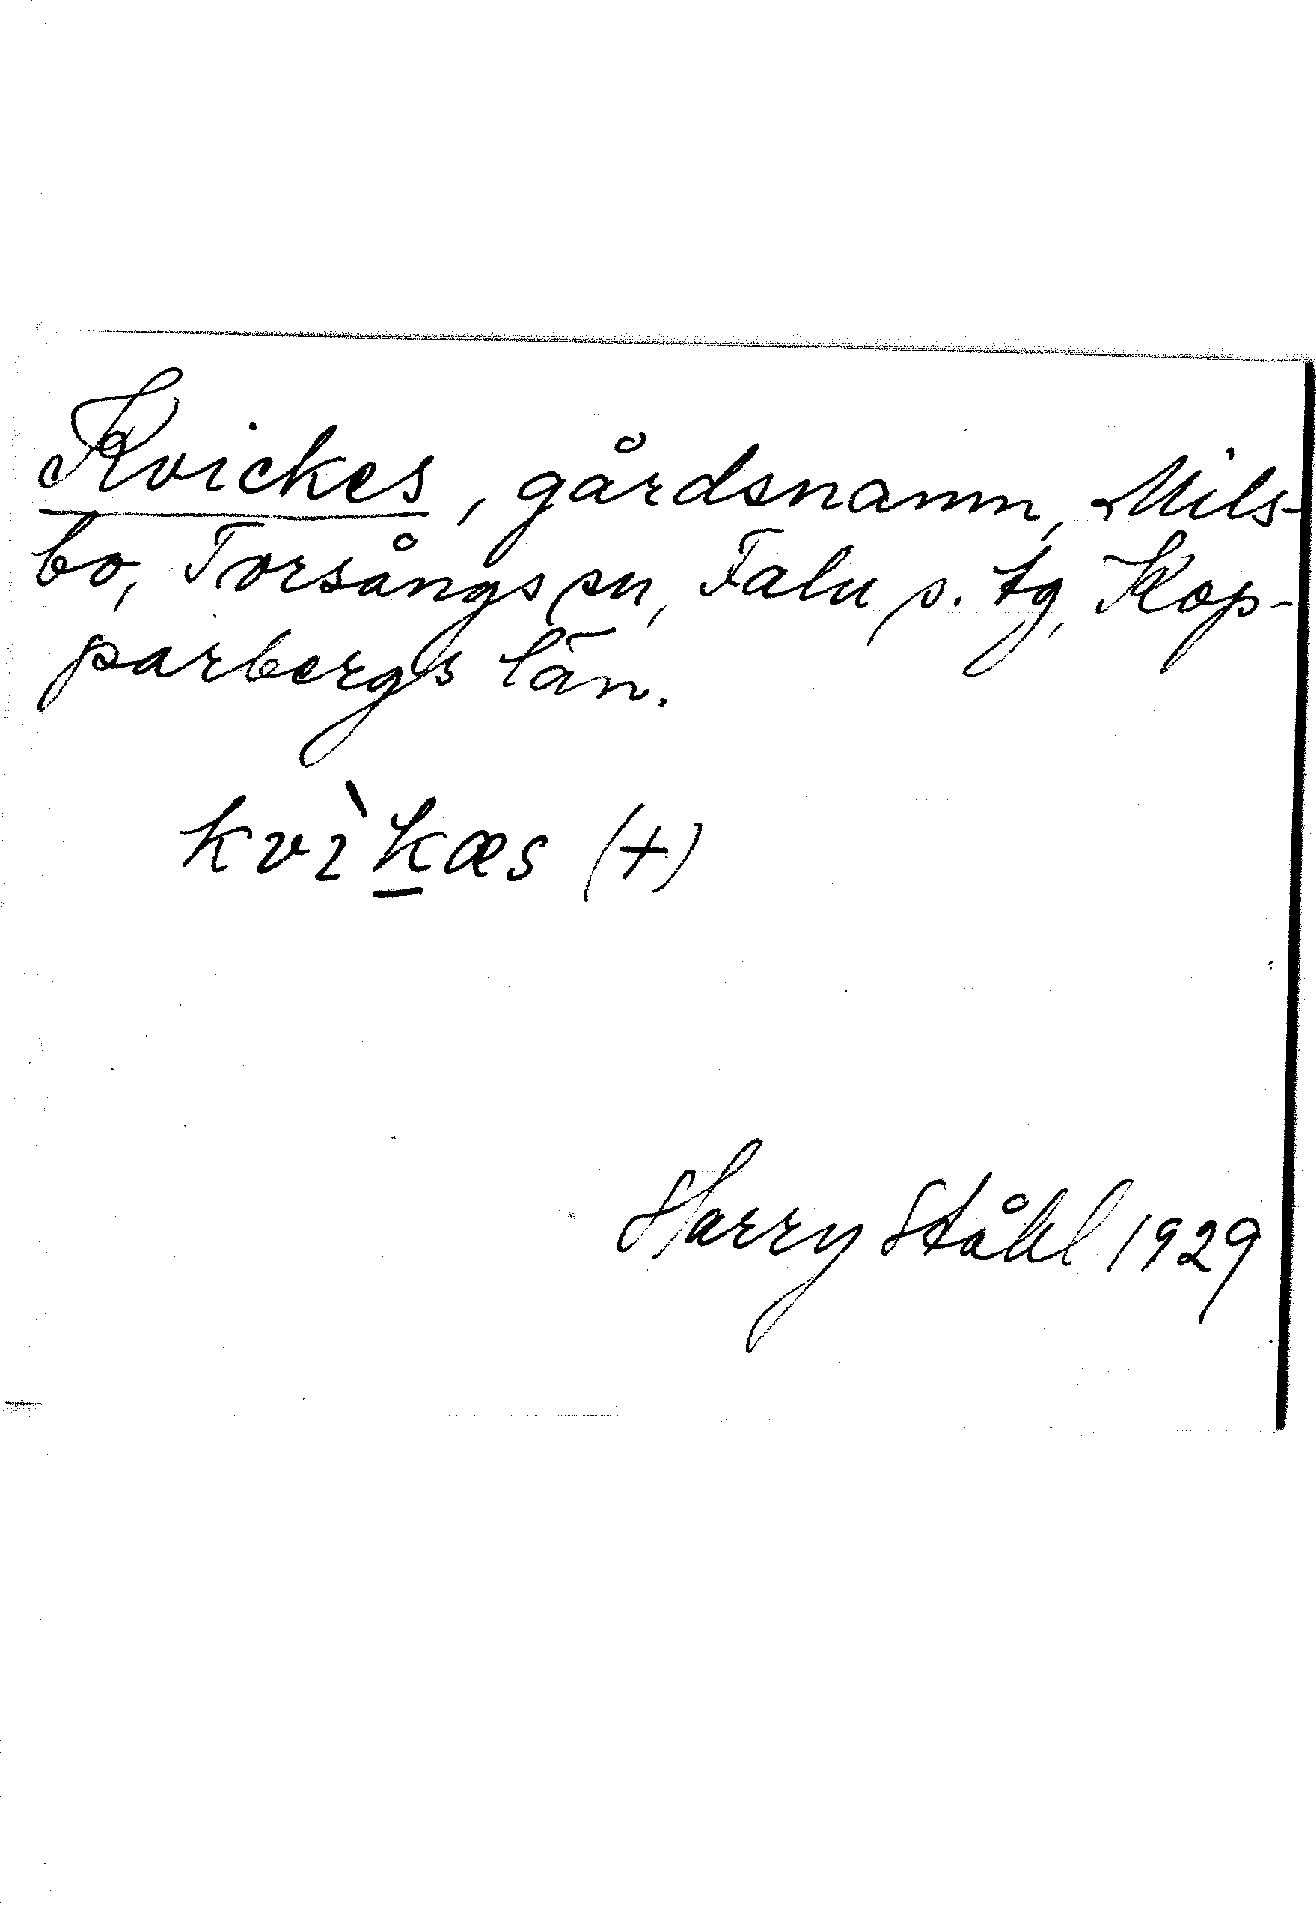 Kvickes, gårdsnamn, Mils-
bo, Torsångs sn, Falu s. tg, Kop-
parbergs län.
kvìk̲æs (+)
Harry Ståhl 1929